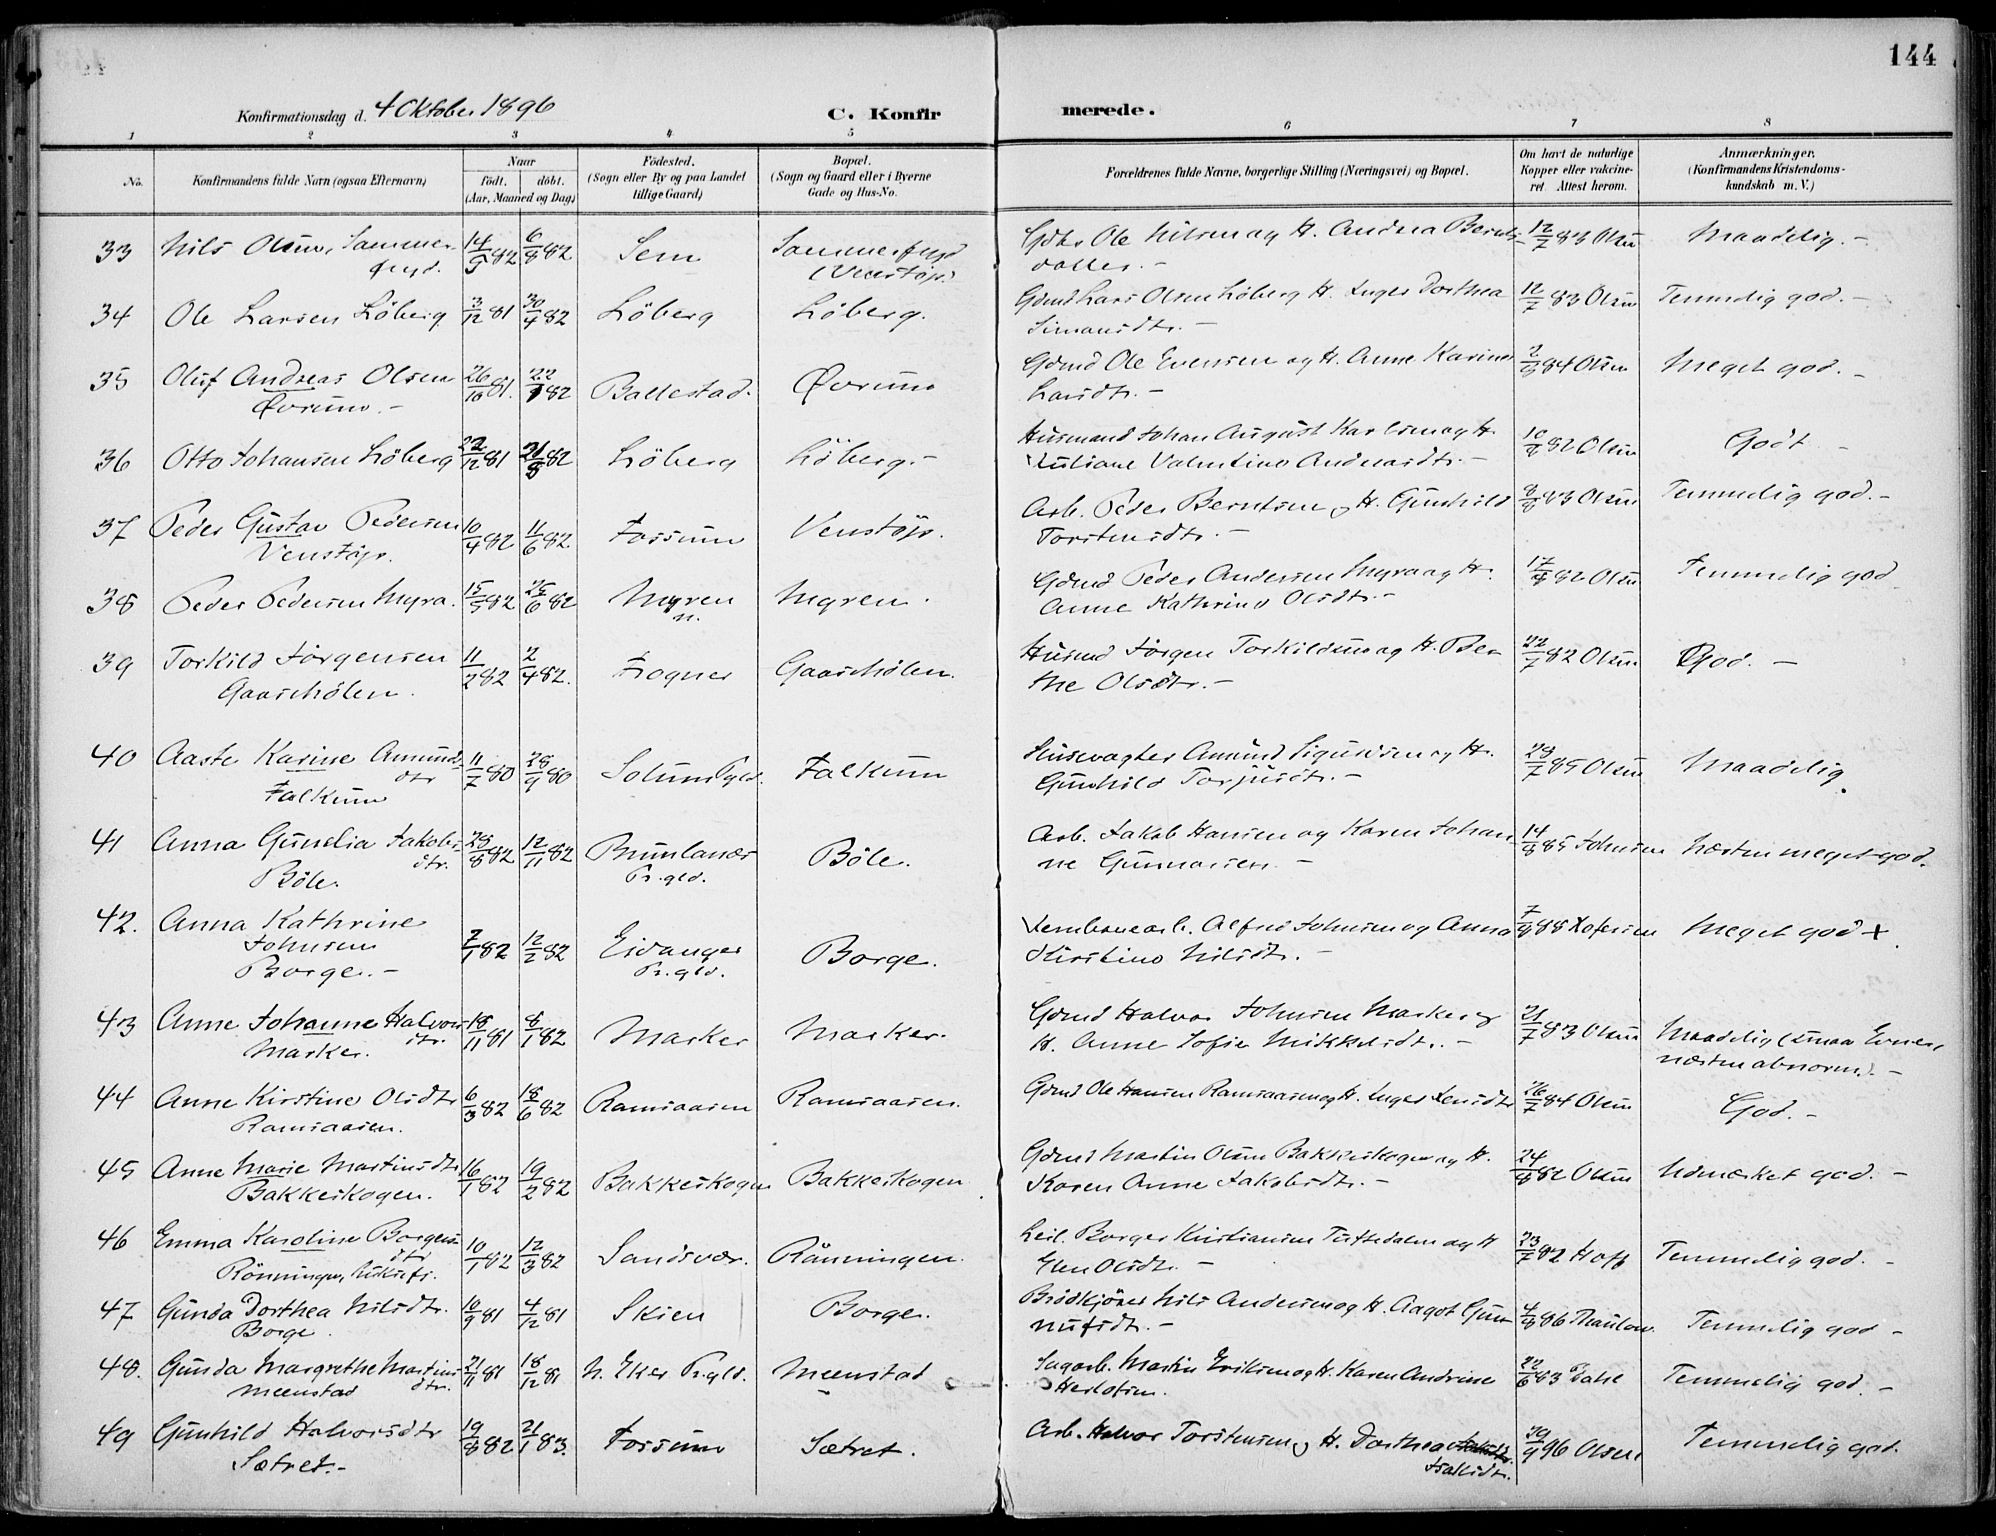 144
Konfirmationsdag d. 4 Oktober 1896
C. Konfirmerede.
1 2 3 4 5 6 7 8
No. Konfirmandens fulde Navn (ogsaa Efternavn)
Naar født. døbt. (Aar, Maaned og Dag)
Fødested. (Sogn eller By og paa Landet tillige Gaard)
Bopæl. (Sogn og Gaard eller i Byerne Gade og Hus-No.
Forældrenes fulde Navne, borgerlige Stilling (Næringsvei) og Bopæl.
Om havt de naturlige Kopper eller vakcineret Attest herom.
Anmærkninger. (Konfirmandens Kristendomskundskab m. V.)
33 Nils Olsen, 14/5 82 6/8 82 Sem (Venstøp) Gdbr. Ole Nilsen og H. Andrea 12/7 83 Olsen Maadelig. -
34 Ole Larsen Löberg 3/12 81 30/4 82 Löberg Löberg. Gdmd Lars Olsen Löberg H. Inger Dorthea
Simonsdtr. - 12/7 83 Olsen Temmelig god. -
35 Oluf Andreas Olsen 26/10 81. 82 Ballestad. Øvrum Gdmd Ole Evensen og H. Anne Karine
Øvrum. - Larsdtr. - 84 Olsen Meget god. -
36 Otto Johansen Löberg 22/12 81 82 Löberg Löberg. - Husmand Johan August Karlsen og H.
Juliane Valentine Andersdtr. - 10/8 82 Olsen Godt -
37 Peder Gustav Pedersen 10/4 82 11/6 82. Fossum Venstøp. Arb. Peder Berntsen og H. Gunhild
Venstøp. Torstensdtr. - 8/8 83 Olsen Temmelig god. -
38 Peder Pedersen Myra. 15/5 82 25/6 82 Myren Myren. Gdmd Peder Andersen Myra og H.
n. Anne Kathrine Olsdtr. - 82 Olsen Temmelig god
39 Torkild Jørgensen 11/2 82 2/4 82. Fogner Gaasehölen. Husmd Jørgen Torkildsen og H. Ber
Gaasehölen. the Olsdtr. - 22/7 82 Olsen God. -
40 Aaste Karine Amunds- 11/7 80 28/9 80 Solum Pgld. Falkum Husevagter Amund Sigurdsen og H.
dtr
Falkum Gunhild Torjusdtr. - 29/7 85 Olsen Maadelig.
41 Anna Gunelia Jakobs- 28/8 82 12/11 82 Brunlanæs Böle. Arb. Jakob Hansen og Karen Johan
dtr.
Böle. Pr.gld. ne Gunnarsen. - 14/8 85 Johnsen Næsten meget god.
42. Anna Kathrine
Johnsen 7/1 82 12/2 82 Eidanger Borge. Alfred Johnsen og Anna
Borge. - Pr.gld. Kirstine Nilsdtr. - 88 Meget god +
43 Anne Johanne Halvors 18/11 81 8/1 82 Marker Marker. Gdmd Halvor Johnsen Marker og
dtr.
Marker. H. Anne Sofie Mikkelsdtr. - 21/7 83 Olsen Maadelig (smaa Evner,
næsten abnorm). -
44 Anne Kirstine Olsdtr 6/3 82 18/6 82 Ramsaasen Ramsaasen. Gdmd Ole Hansen Ramsaasen og H. Inger Jensdtr
Ramsaasen. 26/7 84 Olsen God. -
45 Anne Marie Martinsdtr 16/1 82 19/2 82 Bakkeskogen Bakkeskogen Gdmd Martin Olsen Bakkeskogen og H.
Bakkeskogen. Karen Anne Jakobsdtr. - 24/8 82 Olsen Udmærket god. -
46 Emma Karoline Borgers- 10/1 82 12/3 82 Sandsvær. Rönningen. Leil. Borger Kristiansen Tuftedalen og H
dtr
Rönningen, Elen Olsdtr. - 23/7 82 Hoff Temmelig god. -
47 Gunda Dorthea Nilsdtr. 10/9 81 4/12 81 Skien Borge. Brödkjörer Nils Andersen og H. Aagot Gun
Borge. nufsdtr. - 4/8 86 Thaulow. Temmelig god -
48. Gunda Margrethe Martins 21/11 81 18/12 81 N. Eker Pr.gld. Meenstad Sagarb. Martin Eriksen og H. Karen Andrine
Meenstad dtr. 22/6 83 Dahl Temmelig god. -
49 Gunhild Halvorsdtr 19/8 82 21/1 83. Fossum Sætret. Arb. Halvor Torstensen og H. Dorthea
Sætret. - Isaksdtr. 96 Olsen Temmelig god.